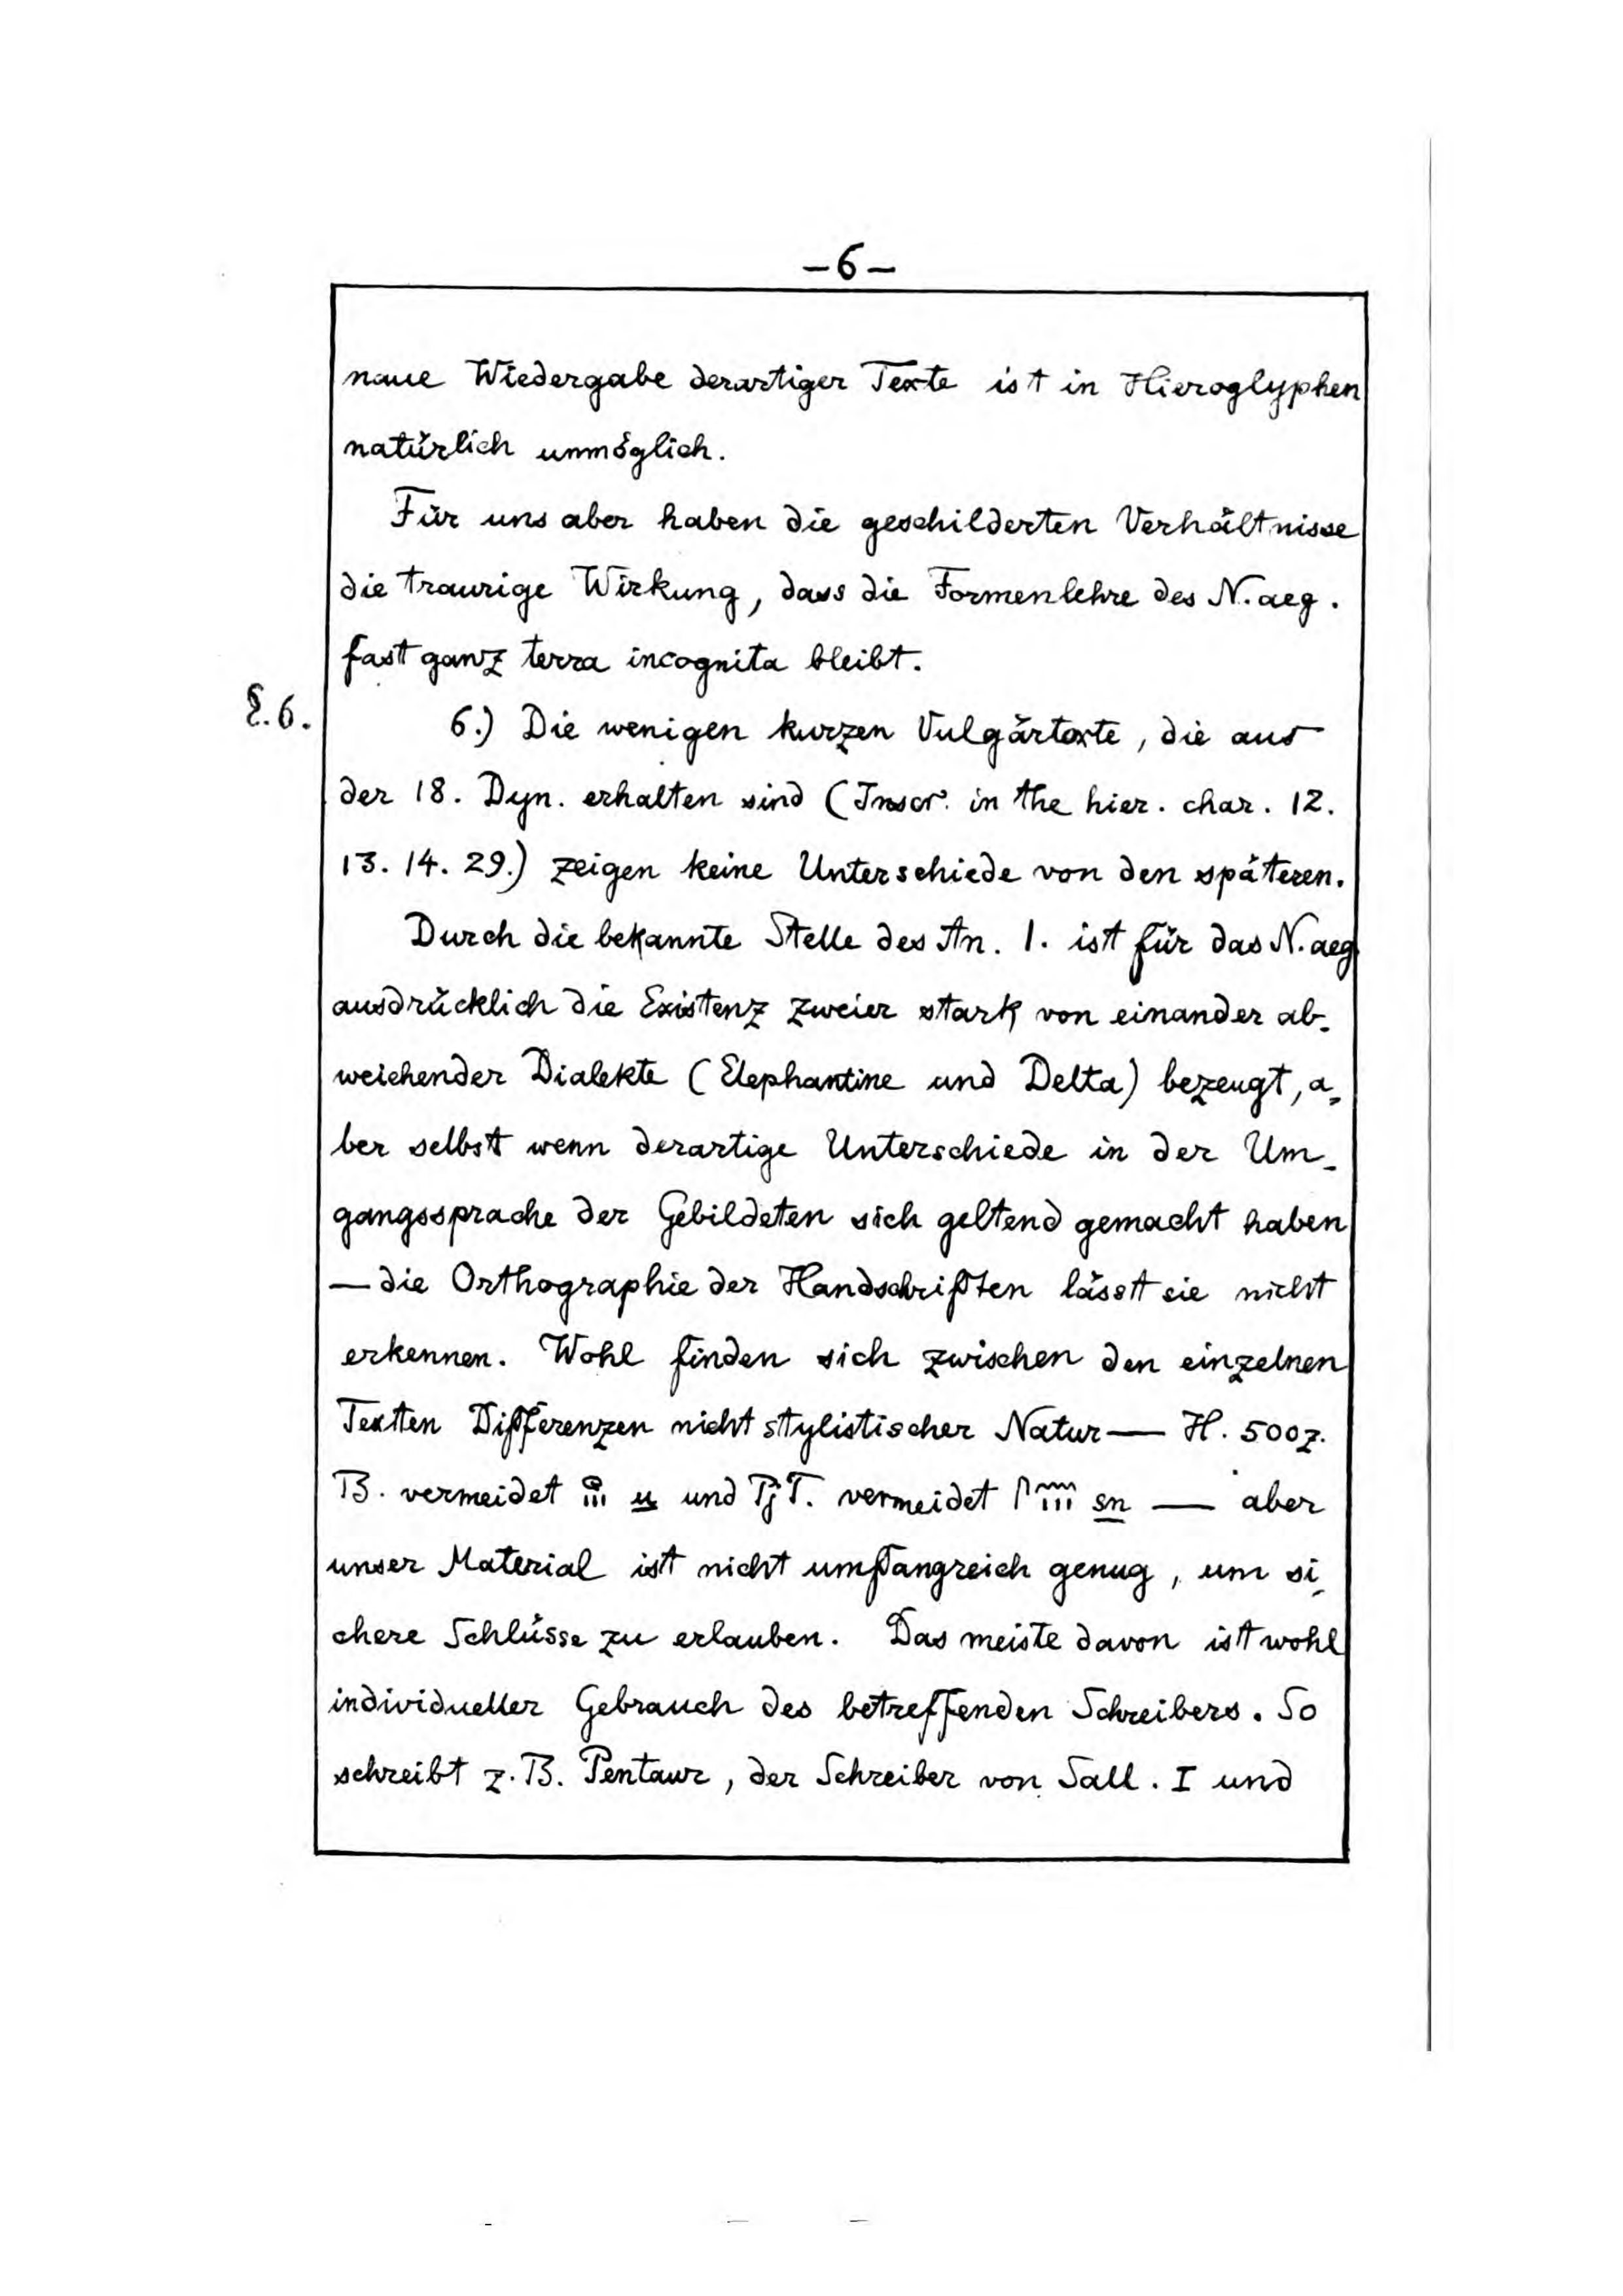 –6–
naue Wiedergabe derartiger Texte ist in Hieroglyphen
natürlich unmöglich.
Für uns aber haben die geschilderten Verhältnisse
die traurige Wirkung, dass die Formenlehre des N. aeg.
fast ganz terra incognita bleibt.
§.6. 6.) Die wenigen kurzen Vulgärtexte, die aus
der 18. Dyn. erhalten sind (Inscr. in the hier. char. 12.
13. 14. 29.) zeigen keine Unterschiede von den späteren.
Durch die bekannte Stelle des An. 1. ist für das N. aeg.
ausdrücklich die Existenz zweier stark von einander ab-
weichender Dialekte (Elephantine und Delta) bezeugt, a-
ber selbst wenn derartige Unterschiede in der Um-
gangssprache der Gebildeten sich geltend gemacht haben
— die Orthographie der Handschriften lässt sie nicht
erkennen. Wohl finden sich zwischen den einzelnen
Texten Differenzen nicht stylistischer Natur — H. 500 z.
B. vermeidet u und PjT. vermeidet sn — aber
unser Material ist nicht umfangreich genug, um si-
chere Schlüsse zu erlauben. Das meiste davon ist wohl
individueller Gebrauch des betreffenden Schreibers. So
schreibt z. B. Pentaur, der Schreiber von Sall. I und